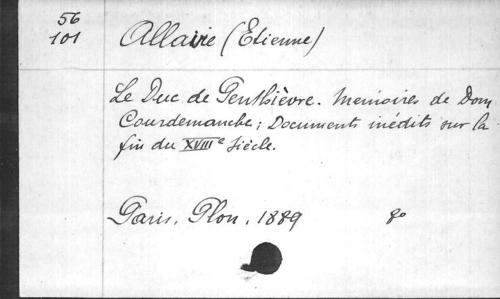 56
101
Allaire (Etienne)
Le Duc de Penthièvre. Memoires de Dom
Courdemanche; Documents inédits sur la
fin du XVIIIe siècle.
Paris, Plon, 1889 8o